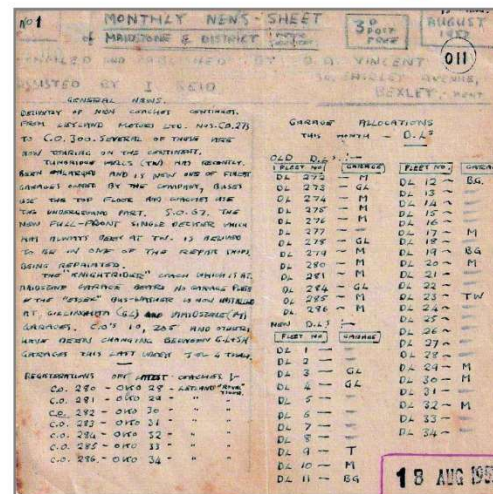 No 1
MONTHLY NEWS-SHEET
of MAIDSTONE & DISTRICT
3D POST FREE
AUGUST
011
COMPILED AND PUBLISHED BY D.A. VINCENT
SHIRLEY AVENUE,
ASSISTED BY I REID
BEXLEY, KENT
GENERAL NEWS.
DELIVERY OF NEW COACHES CONTINUES.
FROM LEYLAND MOTORS LTD. NOS. CO.273
TO C.O. 300. SEVERAL OF THESE ARE
NOW TOURING ON THE CONTINENT.
TUNBRIDGE WELLS (TW) HAS RECENTLY
BEEN ENLARGED AND IS NOW ONE OF FINEST
GARAGES OWNED BY THE COMPANY, BUSES
USE THE TOP FLOOR AND COACHES USE
THE UNDERGROUND PART. S.O.67. THE
NEW FULL-FRONT SINGLE DECKER WHICH
HAS ALWAYS BEEN AT TW. IS
TO BE IN ONE OF THE REPAIR SHOPS
BEING REPAINTED.
THE "KNIGHTRIDER" COACH WHICH IS AT
MAIDSTONE GARAGE BEARS NO GARAGE PLATE
THE "ESSEX" BUS-WASHER IS NOW INSTALLED
AT, GILLINGHAM (GL) AND MAIDSTONE (M)
GARAGES. C.O'S 10, 205 AND OTHERS
HAVE BEEN CHANGING BETWEEN GL & SH
GARAGES THIS LAST WEEK
REGISTRATIONS OF LATEST COACHES :-
C.O. 280 - OKO 28 - LEYLAND "ROYAL TIGER"
C.O. 281 - OKO 29 - " "
C.O. 282 - OKO 30 - " "
C.O. 283 - OKO 31 - " "
C.O. 284 - OKO 32 - " "
C.O. 285 - OKO 33 - " "
C.O. 286 - OKO 34 - " "
GARAGE ALLOCATIONS
THIS MONTH - D.L's
OLD D.L's :-
FLEET NO. GARAGE
DL 272 - M
DL 273 - GL
DL 274 - M
DL 275 - M
DL 276 - M
DL 277 -
DL 278 - GL
DL 279 - M
DL 280 - M
DL 281 - M
DL 284 - GL
DL 285 - M
DL 286 - M
NEW D.L's :-
FLEET NO GARAGE
DL 1 -
DL 2 -
DL 3 - GL
DL 4 - GL
DL 5 -
DL 6 -
DL 7 -
DL 8 -
DL 9 - T
DL 10 - M
DL 11 - BG
FLEET NO. GARAGE
DL 12 - BG.
DL 13 -
DL 14 -
DL 15 -
DL 16 -
DL 17 - M
DL 18 -
DL 19 - BG
DL 20 - M
DL 21 -
DL 22 -
DL 23 - TW
DL 24 -
DL 25 -
DL 26 -
DL 27 -
DL 28 -
DL 29 - M
DL 30 - M
DL 31 -
DL 32 - M
DL 33 -
DL 34 -
18 AUG 195